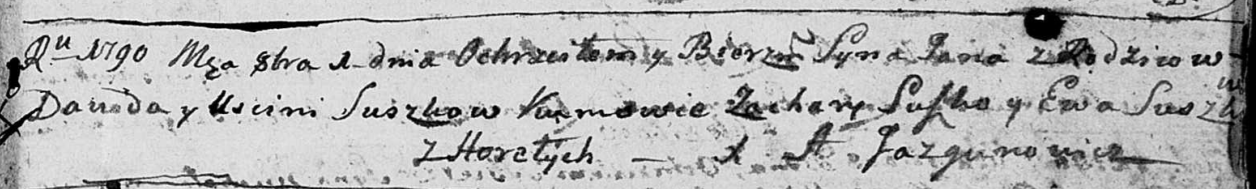 Ru 1790 Mca 8bra 1 dnia Ochrzciłem y Bierzm Syna Jana z Rodzicow
Dawida y Uscini Suszkow Kumowie Zachary Suszko y Ewa Suszk
z Horelych — X A Jazgunowicz